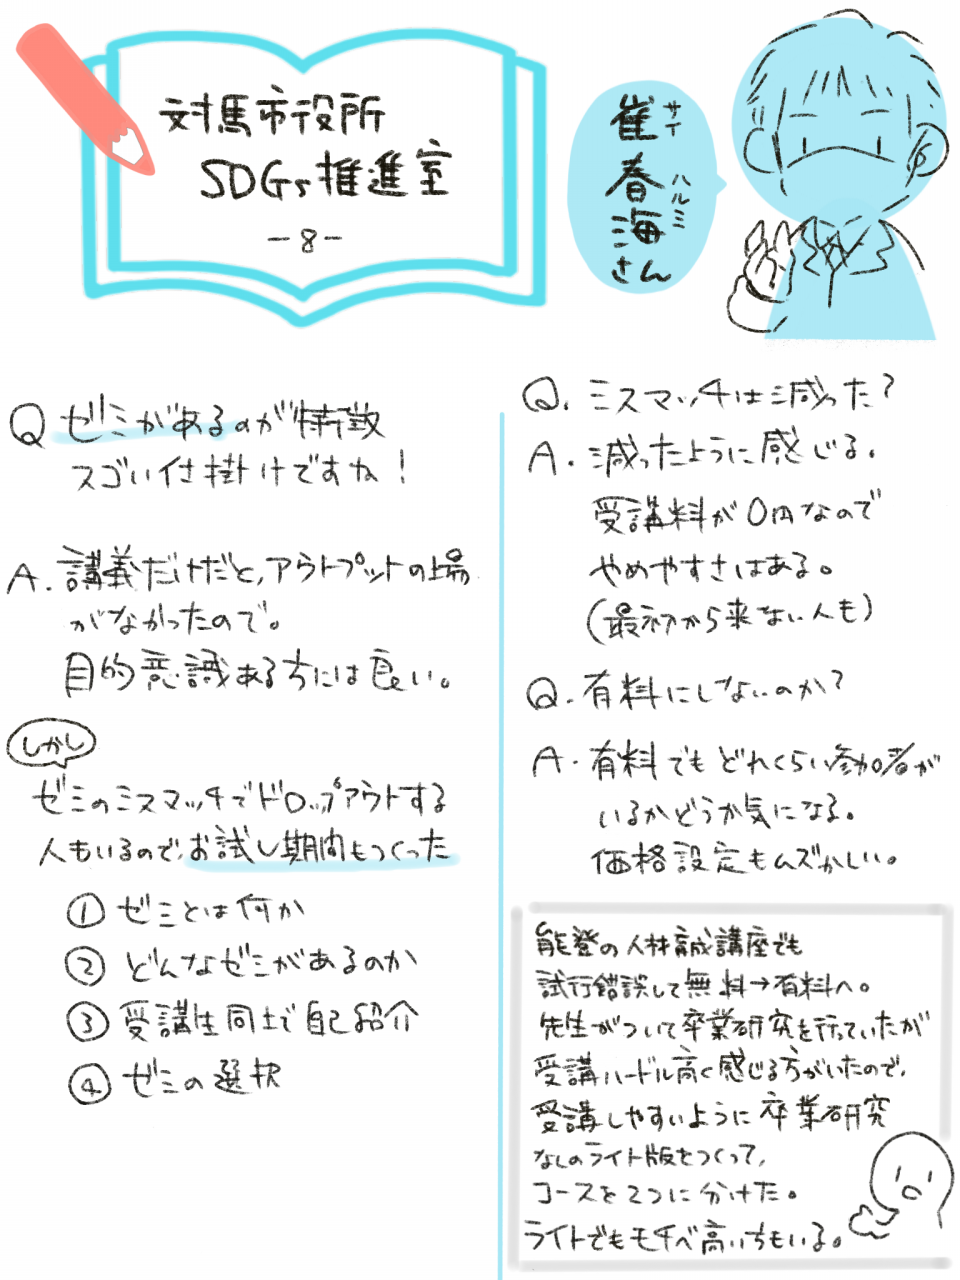 対馬市役所
SDGs推進室
-8-
崔春海さん
サイ
ハルミ
Q ゼミがあるのが特徴
スゴい仕掛けですね！
A. 講義だけだと、アウトプットの場
がなかったので。
目的意識ある方には良い。
しかし
ゼミのミスマッチでドロップアウトする
人もいるので、お試し期間もつくった
① ゼミとは何か
② どんなゼミがあるのか
③ 受講生同士で自己紹介
④ ゼミの選択
Q. ミスマッチは減った？
A. 減ったように感じる。
受講料が0円なので
やめやすさはある。
(最初から来ない人も)
Q. 有料にしないのか？
A. 有料でもどれくらい参加者が
いるかどうか気になる。
価格設定もムズかしい。
能登の人材育成講座でも
試行錯誤して無料→有料へ。
先生がついて卒業研究を行っていたが
受講ハードル高く感じる方がいたので、
受講しやすいように卒業研究
なしのライト版をつくって、
コースを2つに分けた。
ライトでもモチベ高い方もいる。